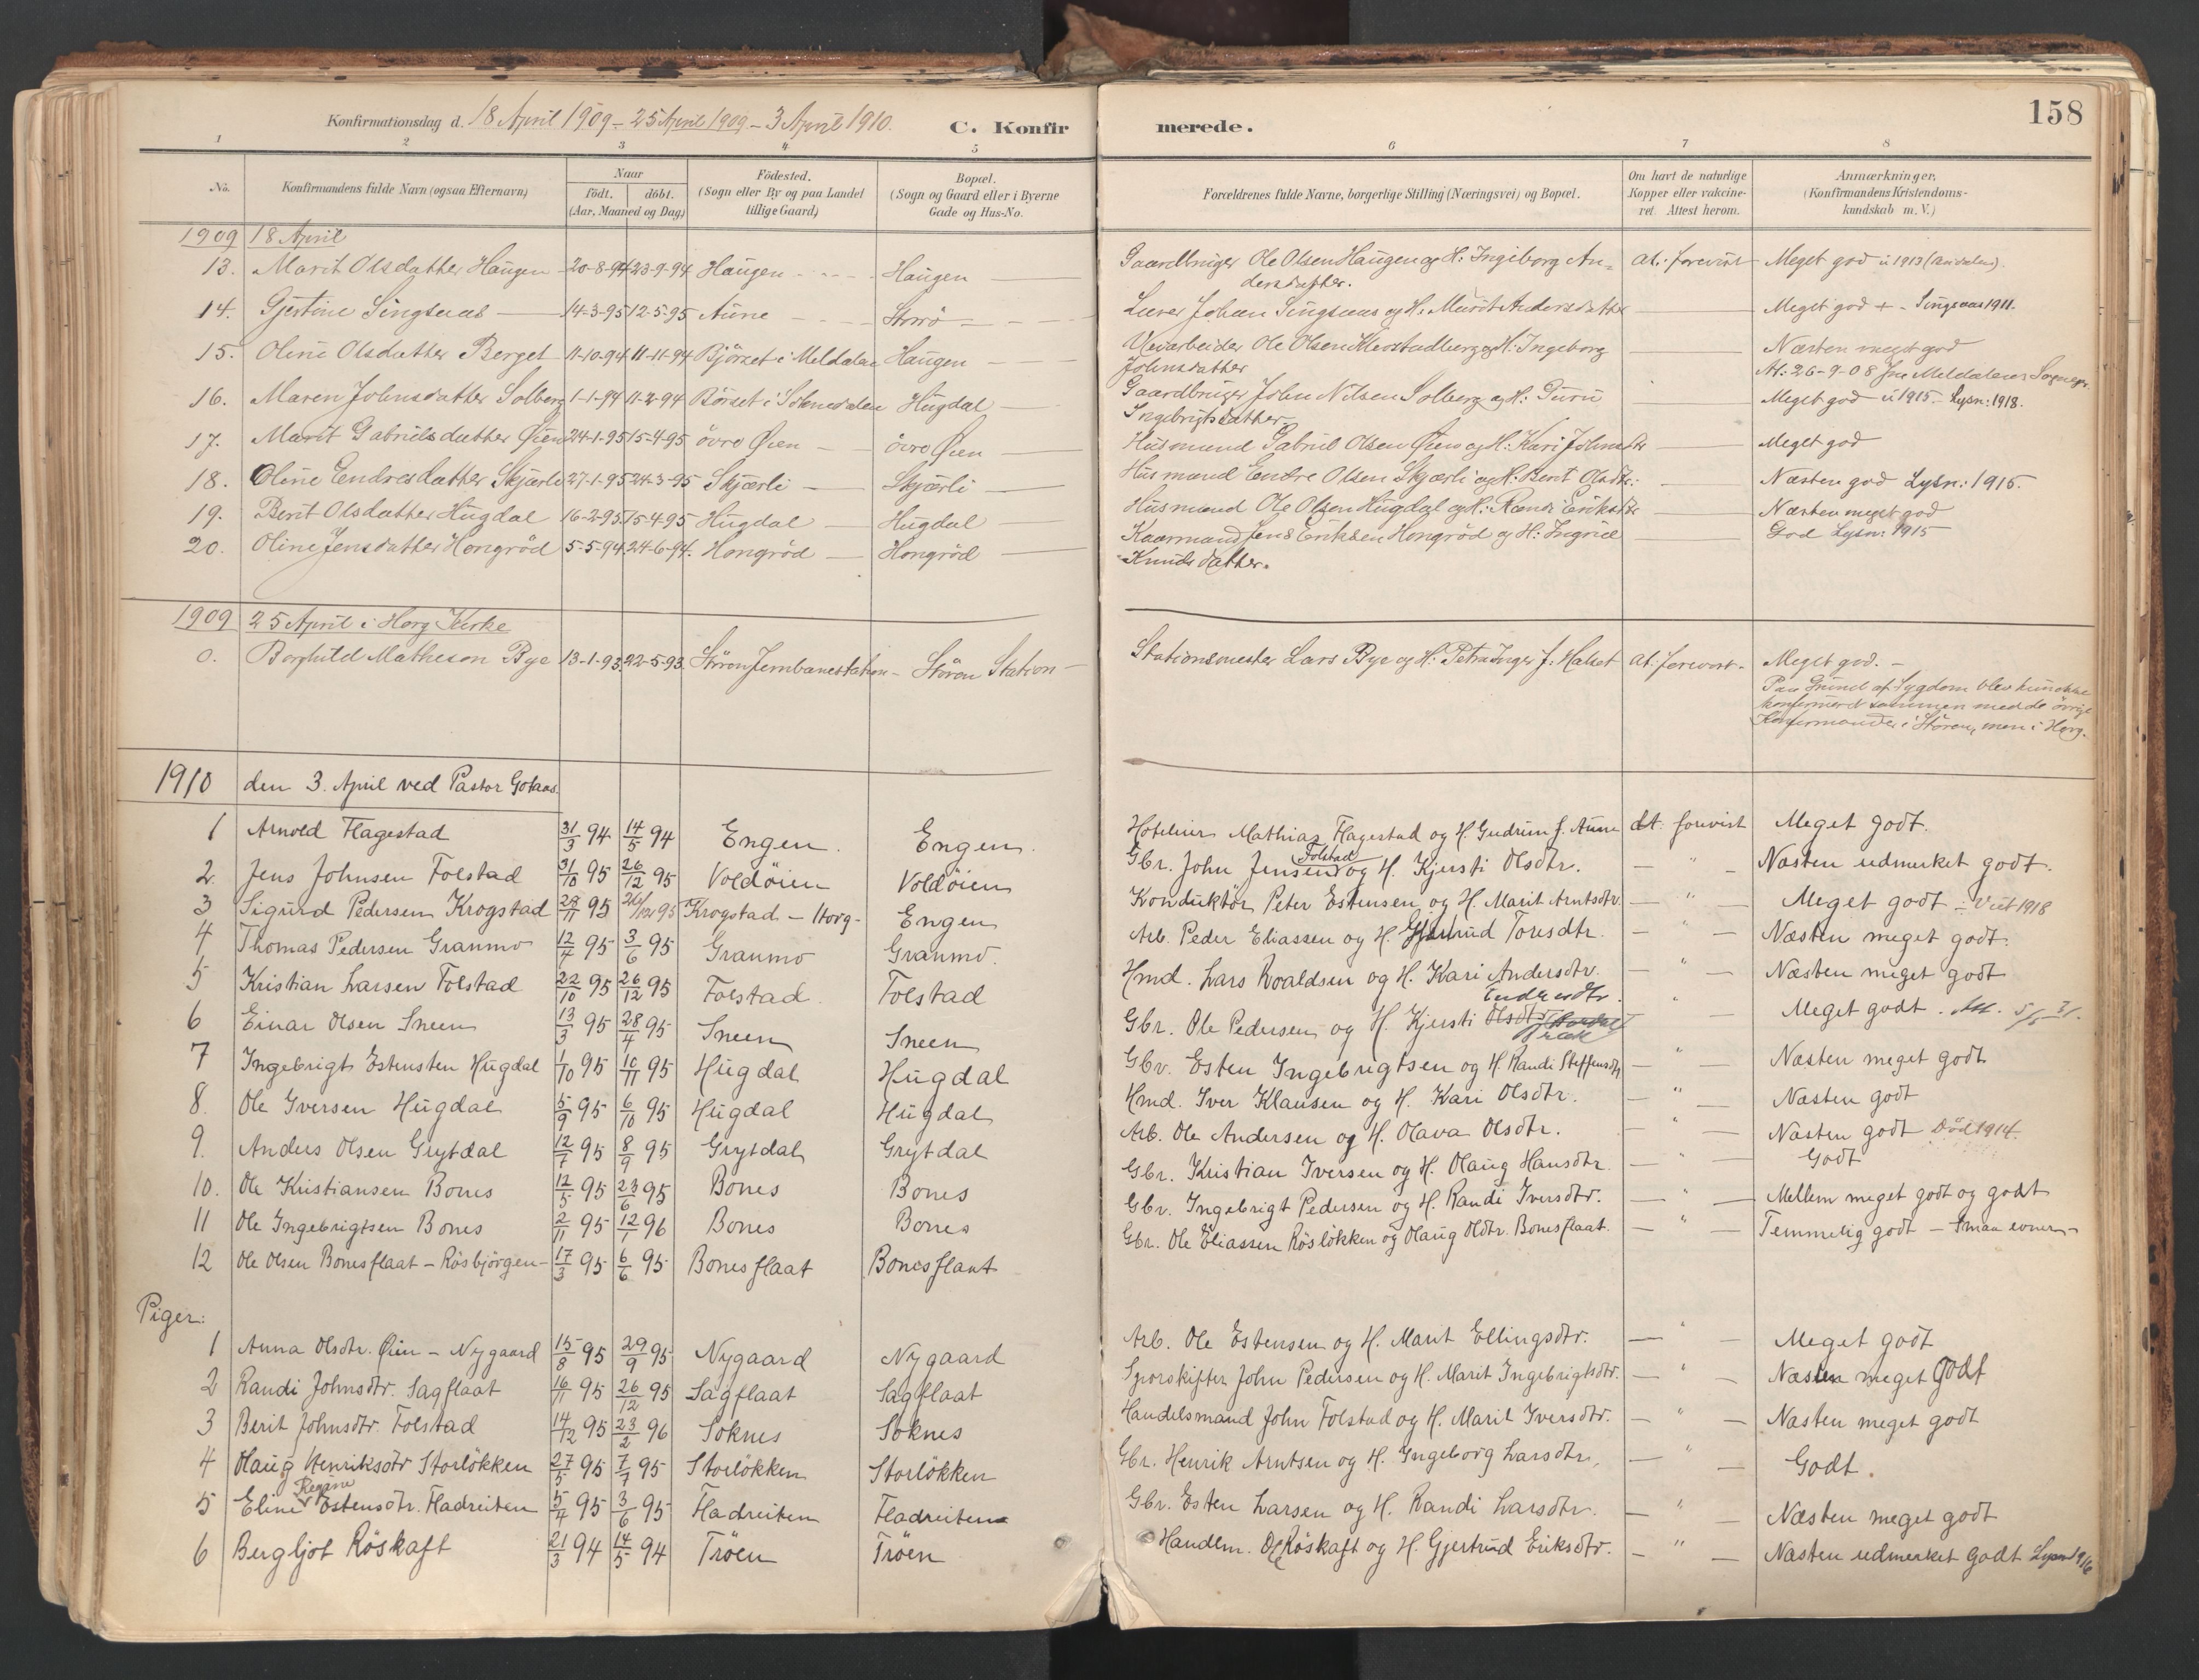 Konfirmationsdag d. 18 April 1909 – 25 April 1909 – 3 April 1910. C. Konfirmerede. 158
1 2 3 4 5 6 7 8
No. Konfirmandens fulde Navn (ogsaa Efternavn) Naar født. døbt. (Aar, Maaned og Dag) Födested. (Sogn eller By og paa Landet tillige Gaard) Bopæl. (Sogn og Gaard eller i Byerne Gade og Hus-No. Forældrenes fulde Navne, borgerlige Stilling (Næringsvei) og Bopæl. Om havt de naturlige Kopper eller vakcineret. Attest herom. Anmærkninger. (Konfirmandens Kristendomskundskab m. V.)
1909 18 April
13. Marit Olsdatter Haugen 20-8-94 23-9-94 Haugen Haugen Gaardbruger Ole Olsen Haugen og H: Ingeborg Andersdatter. at. forevist Meget god
14. Gjertine Singsaas 14-3-95 12-5-95 Aune Storrø Johan Singsaas og H: Marit Andersdatter Meget god + - Singsaas 1911.
15. Oline Olsdatter Berget 11-10-94 11-11-94 Bjørset i Meldalen Haugen Ole Olsen og H: Ingeborg Johnsdatter Næsten meget god At: 26-9-08 fra Meldalens Sognepr.
16. Maren Johnsdatter Solberg 1-1-94 11-2-94 Børset i Soknedalen Hugdal Gaardbruger John Nilsen Solberg og H: Guru Ingebrigtsdatter Meget god u 1915 – Lysn: 1918.
17. Marit Gabrielsdatter Øien 24-1-95 15-4-95 övre Øien övre Øien Husmand Gabriel Olsen Øien og H: Kari Johnsdtr Meget god
18. Oline Endresdatter Skjærli 27-1-95 24-3-95 Skjærli Skjærli Husmand Endre Olsen Skjærli og H: Berit Olsdtr. Næsten god Lysn: 1916.
19. Berit Olsdatter Hugdal 16-2-95 15-4-95 Hugdal Hugdal Husmand Ole Olsen Hugdal og H: Randi Eriksdtr Næsten meget god
20. Oline Jensdatter Hongröd 5-5-94 24-6-94. Hongröd Hongröd Kaarmand Jens Eriksen Hongröd og H: Ingrid Knudsdatter. God Lysn: 1915
1909 25 April i Horg Kirke
0. Borghild Matheson Bye 13-1-93 22-5-93 Stören Jernbanestation Stören Station Stationsmester Lars Bye og H: Petra Inger J. Halset at. forevist. Meget god. –
Paa Grund af Sygdom blev hun ikke
konfirmeret sammen med de övrige
Konfirmander i Stören, men i Horg.
1910 den 3. April ved Pastor Gotaas.
1 Arnold Flagestad 31/3 94 14/5 94 Engen. Engen. Hoteleier Mathias Flagestad og H. Gudrun f. Aune at. forevist Meget godt.
2 Jens Johnsen Folstad 31/10 95 26/12 95 Voldöien Voldöien Gbr. John Jensen Folstad og H. Kjersti Olsdtr. — " — Næsten udmerket godt.
3 Sigurd Pedersen Krogstad 28/11 95 26/12 95 Krogstad – Horg – Engen Konduktör Peter Estensen og H. Marit Arntsdtr. — " — Meget godt – Viet 1918
4 Thomas Pedersen Granmo 12/4 95 3/6 95 Granmo Granmo. Arb. Peder Eliassen og H. Gjertrud Toresdtr. — " — Næsten meget godt.
5 Kristian Larsen Folstad 22/10 95 26/12 95 Folstad. Folstad Hmd. Lars Roaldsen og H. Kari Andersdtr. — " — Næsten meget godt
6 Einar Olsen Sneen 13/3 95 28/4 95 Sneen Sneen Gbr. Ole Pedersen og H. Kjersti Olsdtr " — Meget godt.
7 Ingebrigt Estensten Hugdal 1/10 95 10/11 95 Hugdal Hugdal Gbr. Esten Ingebrigtsen og H. Randi Steffensdtr — " — Næsten meget godt
8. Ole Iversen Hugdal 5/9 95 6/10 95 Hugdal Hugdal Hmd. Iver Klausen og H. Kari Olsdtr. — " — Næsten godt
9. Anders Olsen Grytdal 12/7 95 8/9 95 Grytdal Grytdal Arb. Ole Andersen og H. Olava Olsdtr. — " — Næsten godt Död 1914.
10. Ole Kristiansen Bones 12/5 95 23/6 95 Bones Bones Gbr. Kristian Iversen og H. Olaug Hansdtr. — " — Godt
11 Ole Ingebrigtsen Bones 2/11 95 12/1 96 Bones Bones Gbr. Ingebrigt Pedersen og H. Randi Iversdtr. — " — Mellem meget godt og godt
12 Ole Olsen Bonesflaat – Rösbjörgen – 17/3 95 6/6 95 Bonesflaat Bonesflaat Gbr. Ole Eliassen Röslökken og Olaug Oldtr. Bonesflaat. — " — Temmelig godt – Smaa evner –
Piger:
1 Anna Olsdtr. Øien – Nygaard 15/8 95 29/9 95 Nygaard Nygaard Arb. Ole Estensen og H. Marit Ellingsdtr. — " — Meget godt
2 Randi Johnsdtr. Sagflaat 16/11 95 26/12 95 Sagflaat Sagflaat Sporskifter John Pedersen og H. Marit Ingebrigtsdtr. — " — Næsten meget godt
3 Berit Johnsdtr. Folstad 14/12 95 23/2 96 Soknes Soknes Handelsmand John Folstad og H. Marit Iversdtr. — " — Næsten meget godt
4 Olaug Henriksdtr Storlökken 27/5 95 7/7 95 Storlökken Storlökken Gbr. Henrik Arntsen og H. Ingeborg Larsdtr, — " — Godt.
5 Eline Regine Estensdtr. Fladreiten 5/4 95 3/6 95 Fladreiten Fladreiten Gbr. Esten Larsen og H. Randi Larsdtr. — " — Næsten meget godt
6 Bergljot Röskaft 21/3 94 14/5 94 Tröen Tröen Handlm. Ole Röskaft og H. Gjertrud Eriksdtr. — " — Næsten udmerket Godt Lysn 1916